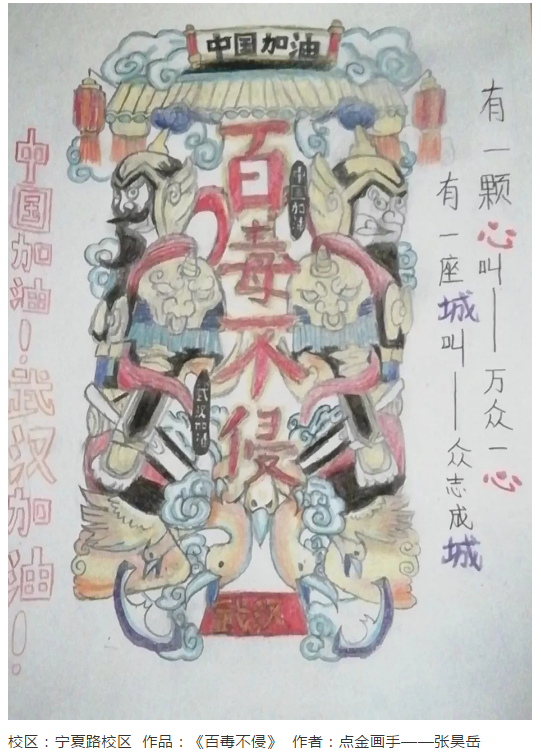 中国加油
百毒不侵
中国加油
武汉加油
武汉
中国加油！武汉加油！
有一颗心叫——万众一心
有一座城叫——众志成城
校区：宁夏路校区 作品：《百毒不侵》 作者：点金画手——张昊岳